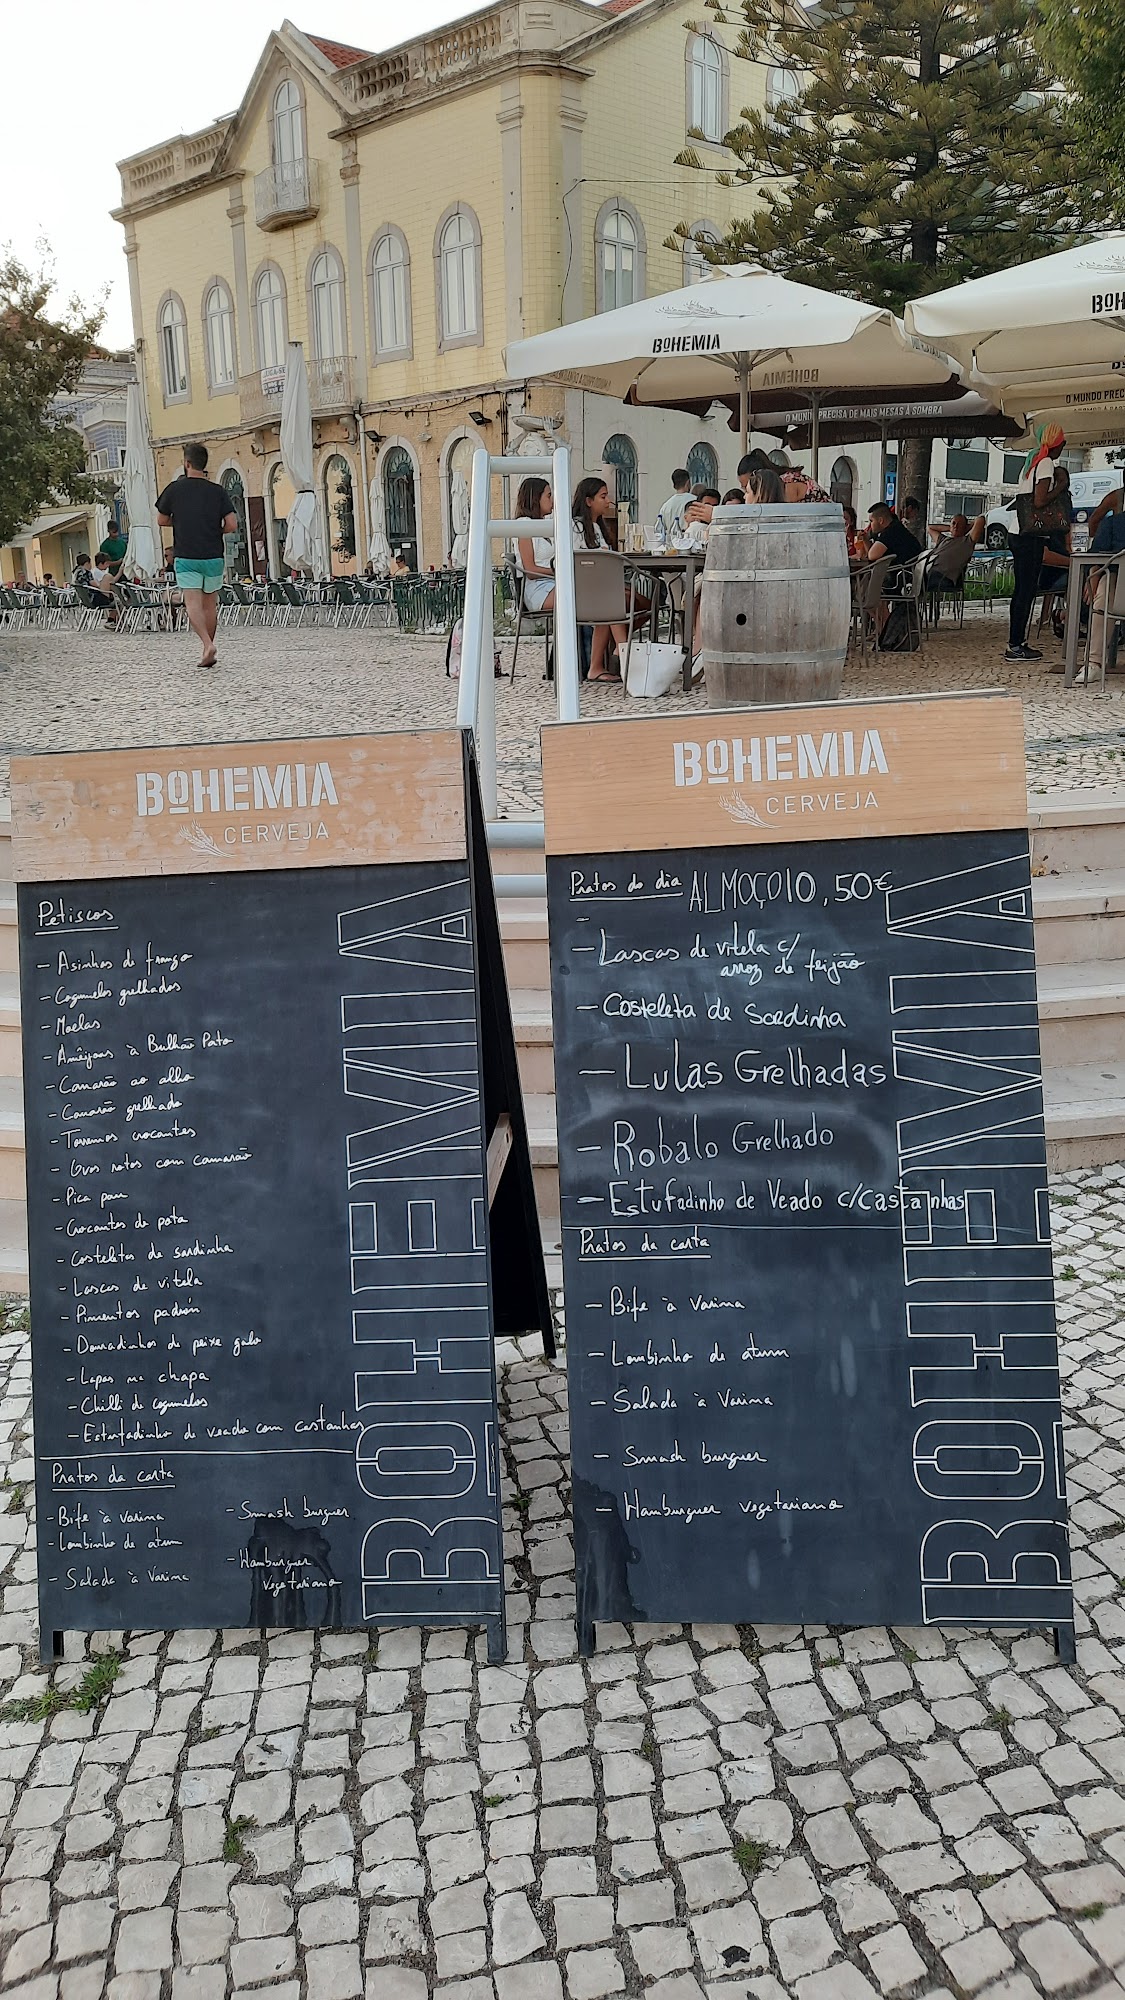 BOHEMIA
BOHEMIA
O MUNDO PRECISA DE MAIS MESAS À SOMBRA
BOHEMIA
CERVEJA
Petiscos
- Asinhas de frango
- Cogumelos grelhados
- Moelas
- Amêijoas à Bulhão Pato
- Camarão ao alho
- Camarão grelhado
- Torresmos crocantes
- Ovos rotos com camarão
- Pica pau
- Crocantes de pota
- Costeletas de sardinha
- Lascas de vitela
- Pimentos padrón
- Douradinhos de peixe galo
- Lapas na chapa
- Chilli de cogumelos
- Estufadinho de veado com castanhas
Pratos da carta
- Bife à varina
- Lombinho de atum
- Salada à Varina
- Smash burguer
- Hamburguer
vegetariano
BOHEMIA
BOHEMIA
CERVEJA
Pratos do dia ALMOÇO 10,50€
-
- Lascas de vitela c/
arroz de feijão
- Costeleta de Sardinha
- Lulas Grelhadas
- Robalo Grelhado
- Estufadinho de Veado c/castanhas
Pratos da carta
- Bife à Varina
- Lombinho de atum
- Salada à Varina
- Smash burguer
- Hamburguer vegetariano
BOHEMIA